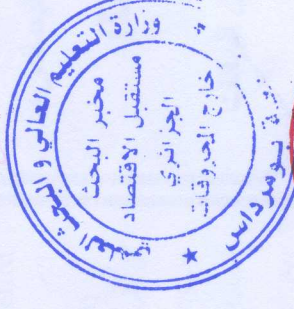 وزارة التعليم العالي و البحث العلمي
مخبر البحث
مستقبل الاقتصاد
الجزائري
خارج المحروقات
بومرداس